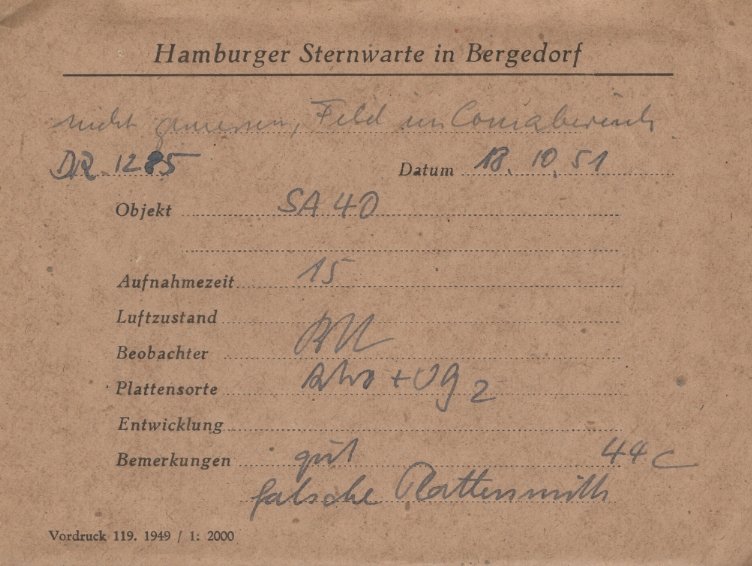 Hamburger Sternwarte in Bergedorf
nicht gemessen, Feld im Comabereich
DR. 1285 Datum 18. 10. 51
Objekt SA 40
Aufnahmezeit 15
Luftzustand
Beobachter
Plattensorte + UG 2
Entwicklung
Bemerkungen gut 44 C
falsche Plattenmitte
Vordruck 119. 1949 / 1: 2000